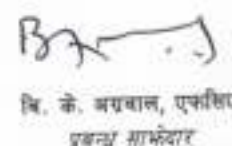 बि. के. अग्रवाल, एफसिए
प्रबन्ध साझेदार